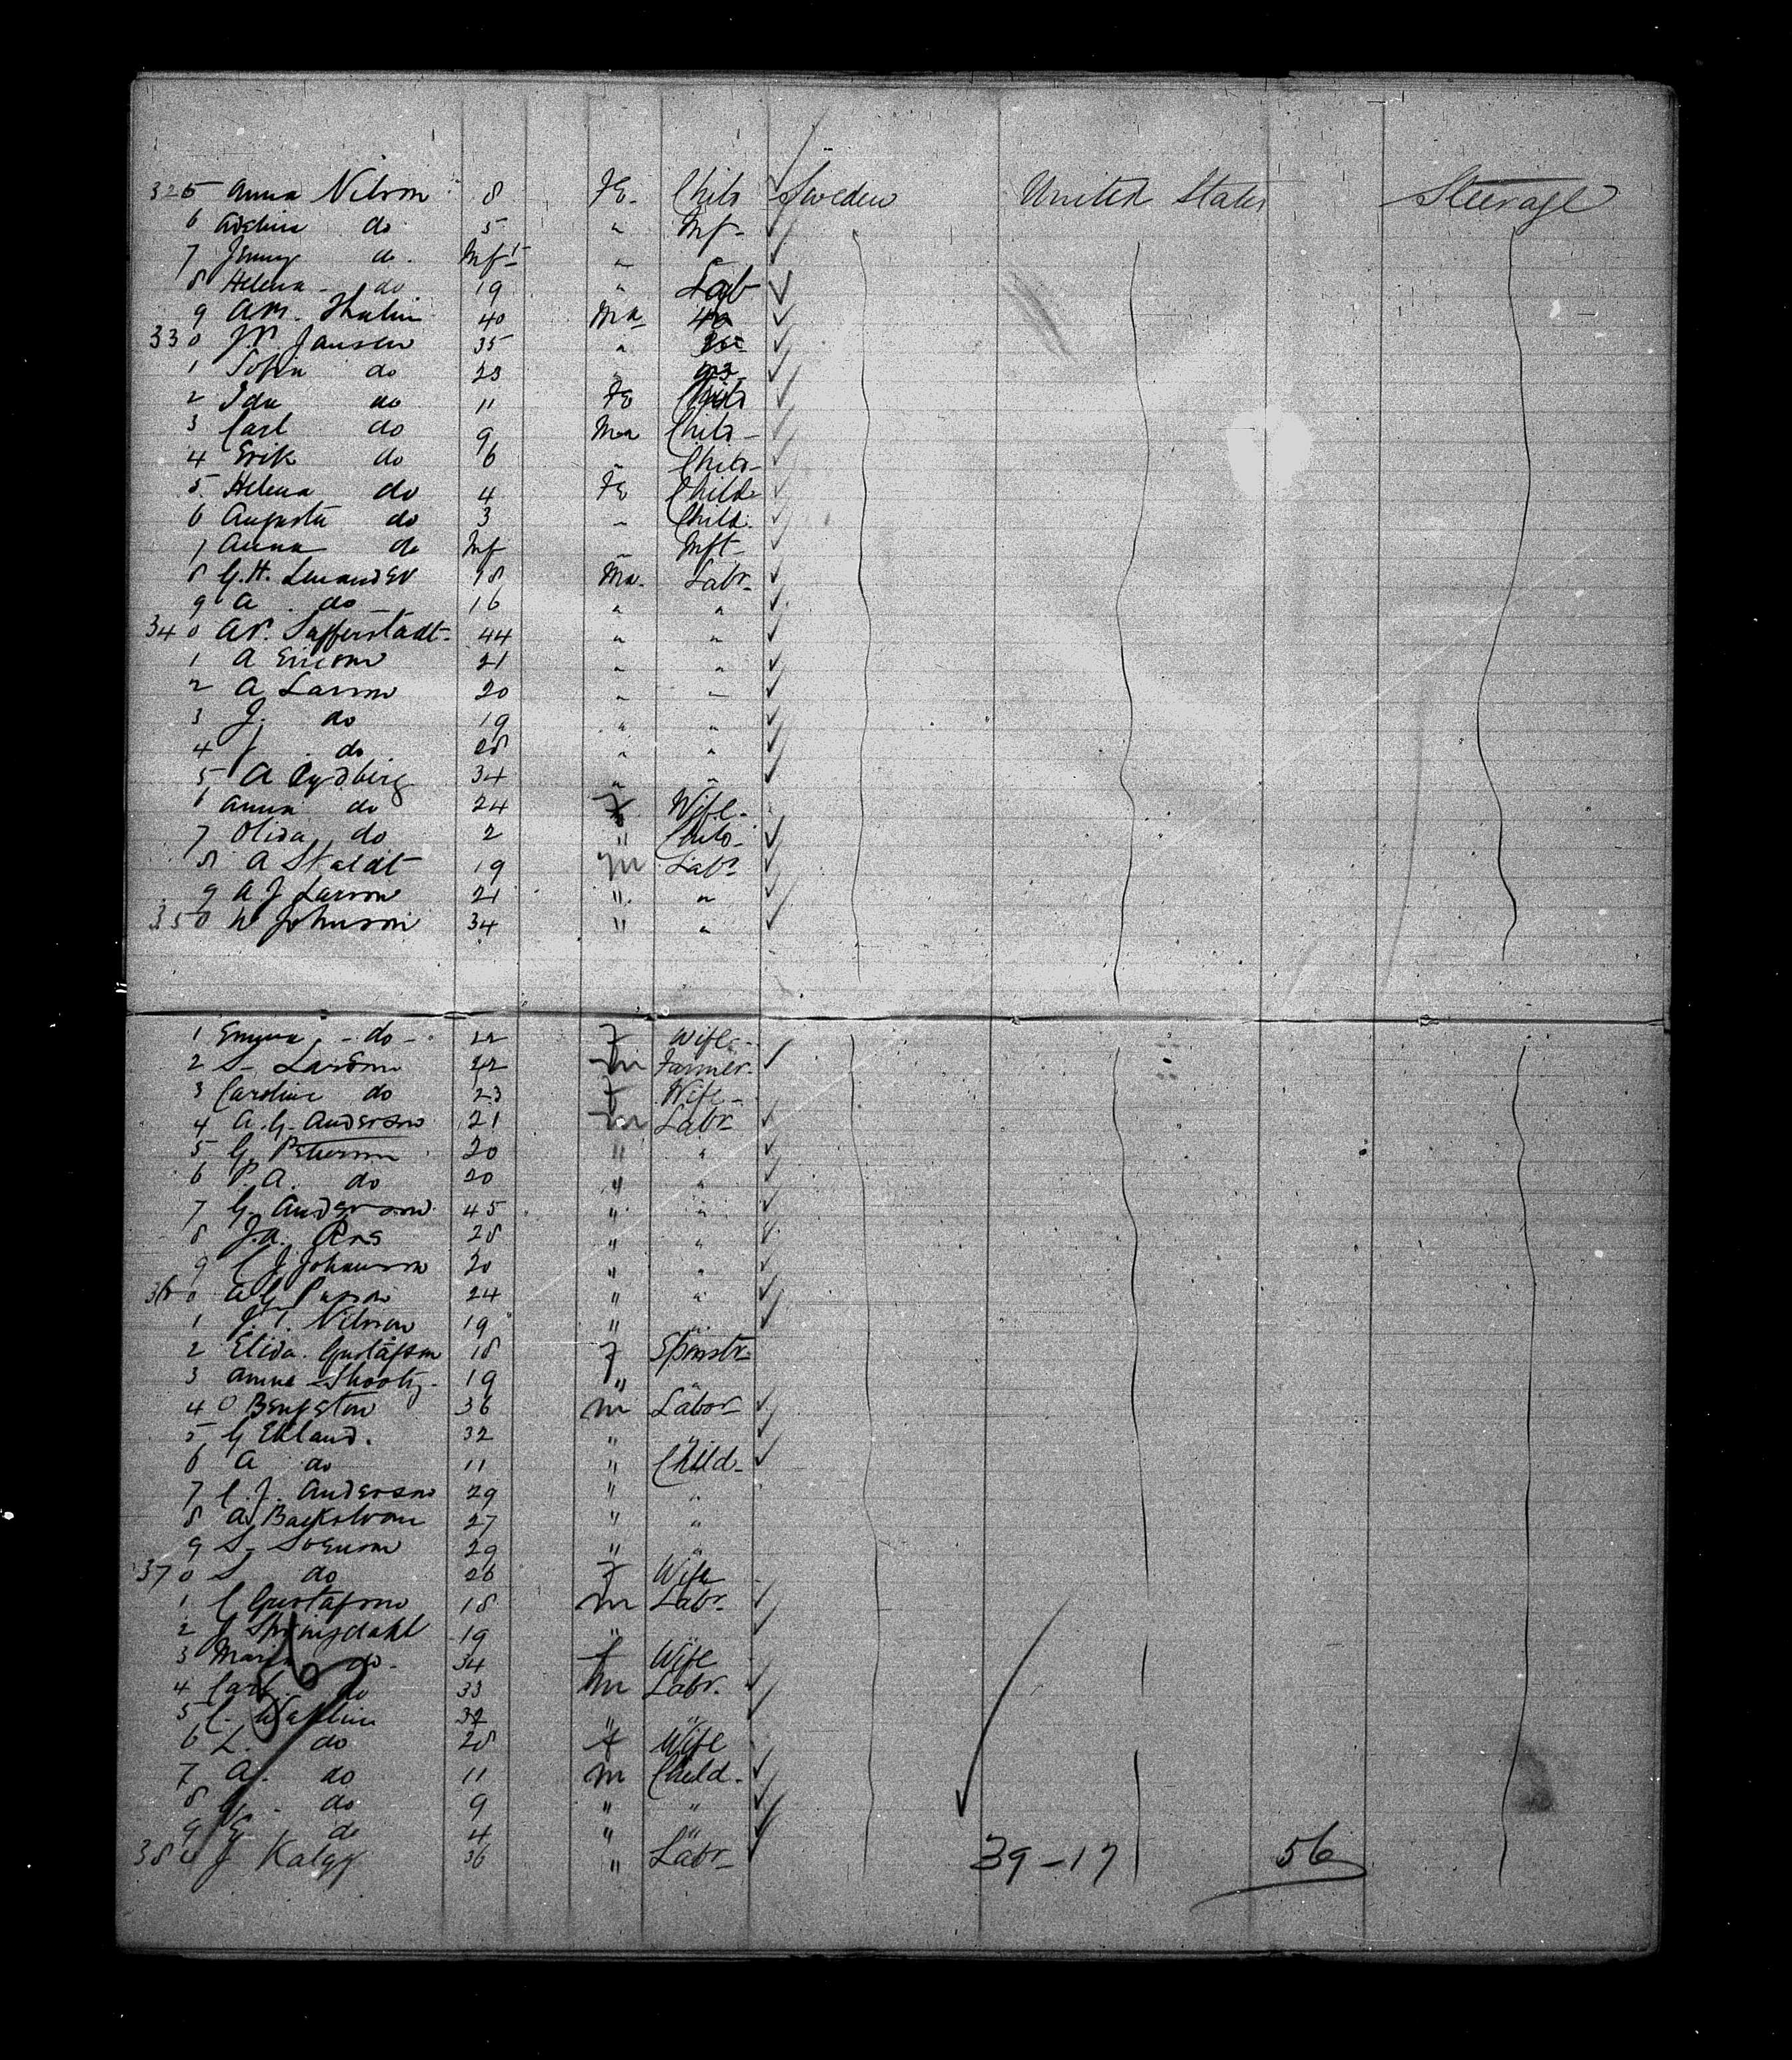 325 Anna Nilson 8 Fe. Child Sweden United States Steerage
6 Adelina do 5 " Inf-
7 Jenny do. Inft "
8 Helena do 19 " Lab
9 A.M. Thulin 40 Ma
330 J.P. Jansen 35 "
1 Sofia do 23 "
2 Ida do 11 Fe Child
3 Carl do 9 Ma Child-
4 Erik do 6 " Child-
5 Helena do 4 Fe Child-
6 Augusta do 3 " Child.
7 Anna do Inf " Inft-
8 G.H. Lenander 18 Ma. Labr-
9 A do 16 " "
340 A.P. Safferstadt- 44 " "
1 A Ericson 21 " "
2 A Larson 20 " "
3 J. do 19 " "
4 J do 28 " "
5 A Rydberg 34 " "
6 Anna do 24 F Wife-
7 Olida do 2 " Child-
8 A Staldt 19 M Labr
9 A J Larson 21 " "
350 N Johnson 34 " "
1 Emma - do - 22 F Wife-
2 S- Larson 42 M Farmer-
3 Caroline do 23 F Wife-
4 A.G. Anderson 21 M Labr
5 G. Peterson 20 " "
6 P.A. do 20 " "
7 G. Anderson 45 " "
8 J.A. 28 " "
9 C J Johanson 20 " "
360 A G 24 " "
1 J. Nilson 19 " "
2 Elida. Gustafson 18 F Spinstr-
3 Anna 19 " "
4 O Bengston 36 M Labor-
5 G Eklund. 32 " "
6 A do 11 " Child-
7 C.J. Anderson 29 " "
8 A. Backstrom 27 " "
9 S- Svenson 29 " "
370 S do 26 F Wife
1 C Gustafson 18 M Labr-
2 J Springdahl 19 " "
3 Maria do- 34 F Wife
4 Carl do 33 M Labr.
5 C. 32 " "
6 L. do 28 F Wife
7 A. do 11 M Child-
8 do 9 " "
9 E do 4 " "
380 J 36 " Labr-
39-17 56